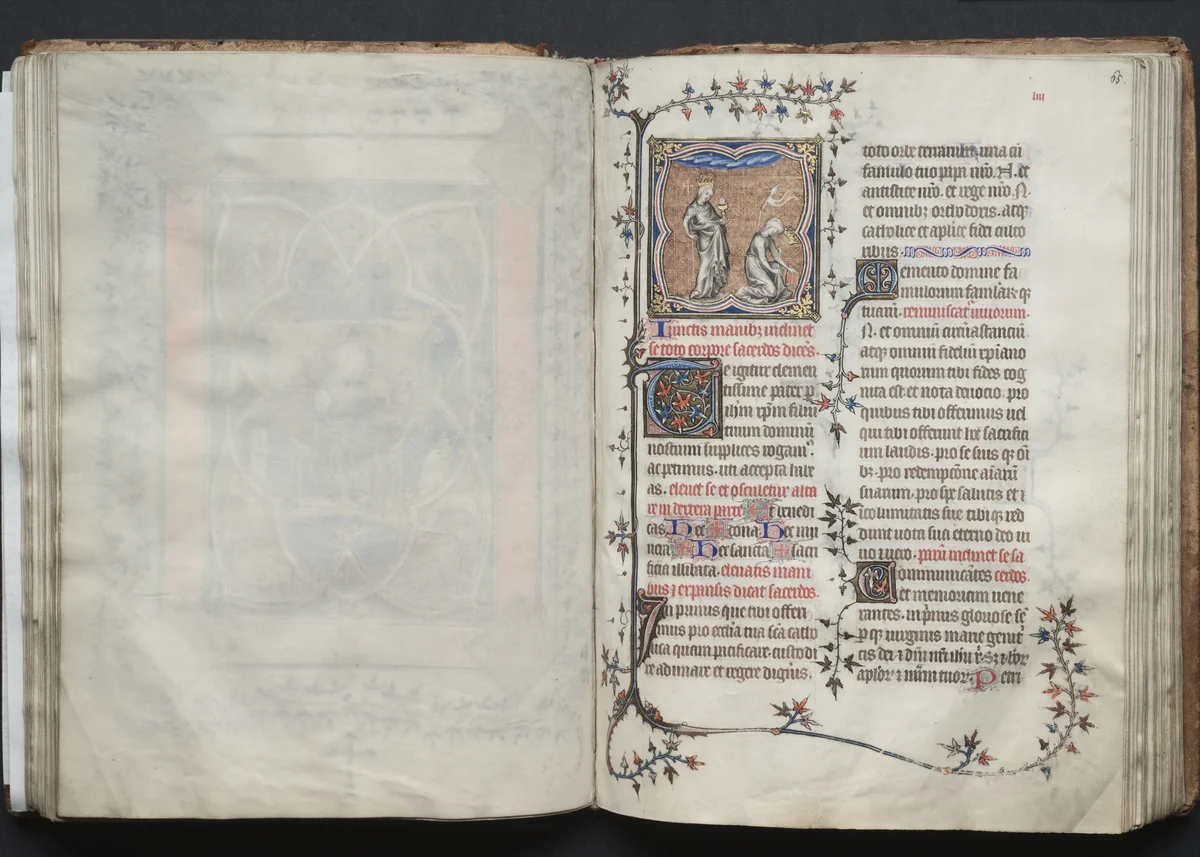 65.
iiij
Iunctis manibz inclinet
se toto corpore sacerdos dicēs.
Te igitur clemen
tissime pater p
ihm xpm filiū
tuum dominū
nostrum supplices rogam⁹.
ac petimus. uti accepta habe
as. eleuet se et osculetur alta
re in dextera parte Et benedi
cas Hec ✠ dona Hec mu
nera ✠ Hec sancta ✠ sacri
ficia illibata. eleuatis mani
bus ⁊ expansis dicat sacerdos.
In primis que tibi offeri
mus pro ecclīa tua scā catho
lica quam pacificare. custodi
re adunare et regere digñis.
toto orbe terrarum una cū
famulo tuo papa nr̄o. N. et
antistite nr̄o. et rege nr̄o. N.
et omnibz orthodoxis. atqz
catholice et aplice fidei culto
ribus
Memento domine fa
mulorum famular̄qz
tuarū. reminiscat̄ uiuorum.
N. et omniū circūastanciū
atqz omniū fideliū xp̄iano
rum quorum tibi fides cog
nita est et nota deuocio. pro
quibus tibi offerimus uel
qui tibi offerunt hoc sacrifici
um laudis. pro se suis qz oī
bz. pro redempcōne aīarū
suarum. pro spe salutis et ī
columitatis sue tibi qz red
dunt uota sua eterno deo ui
uo ⁊ uero. parū inclinet se sa
Communicātes cerdos.
et memoriam uene
rantes. inp̄mis gloriose sē
p qz uirginis marie genit̄
cis dei ⁊ dn̄i nr̄i ihu x̄. Sz ⁊ btor̄
aplor̄ ⁊ mr̄m tuor̄. Petri